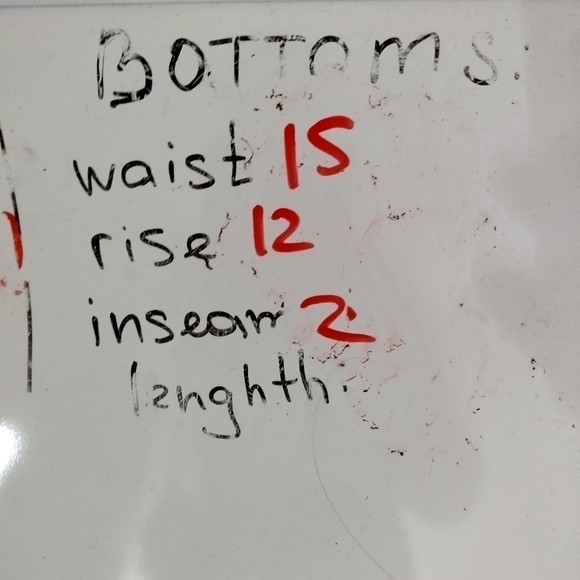 BOTTOMS:
waist 15
rise 12
inseam 2
lenghth: